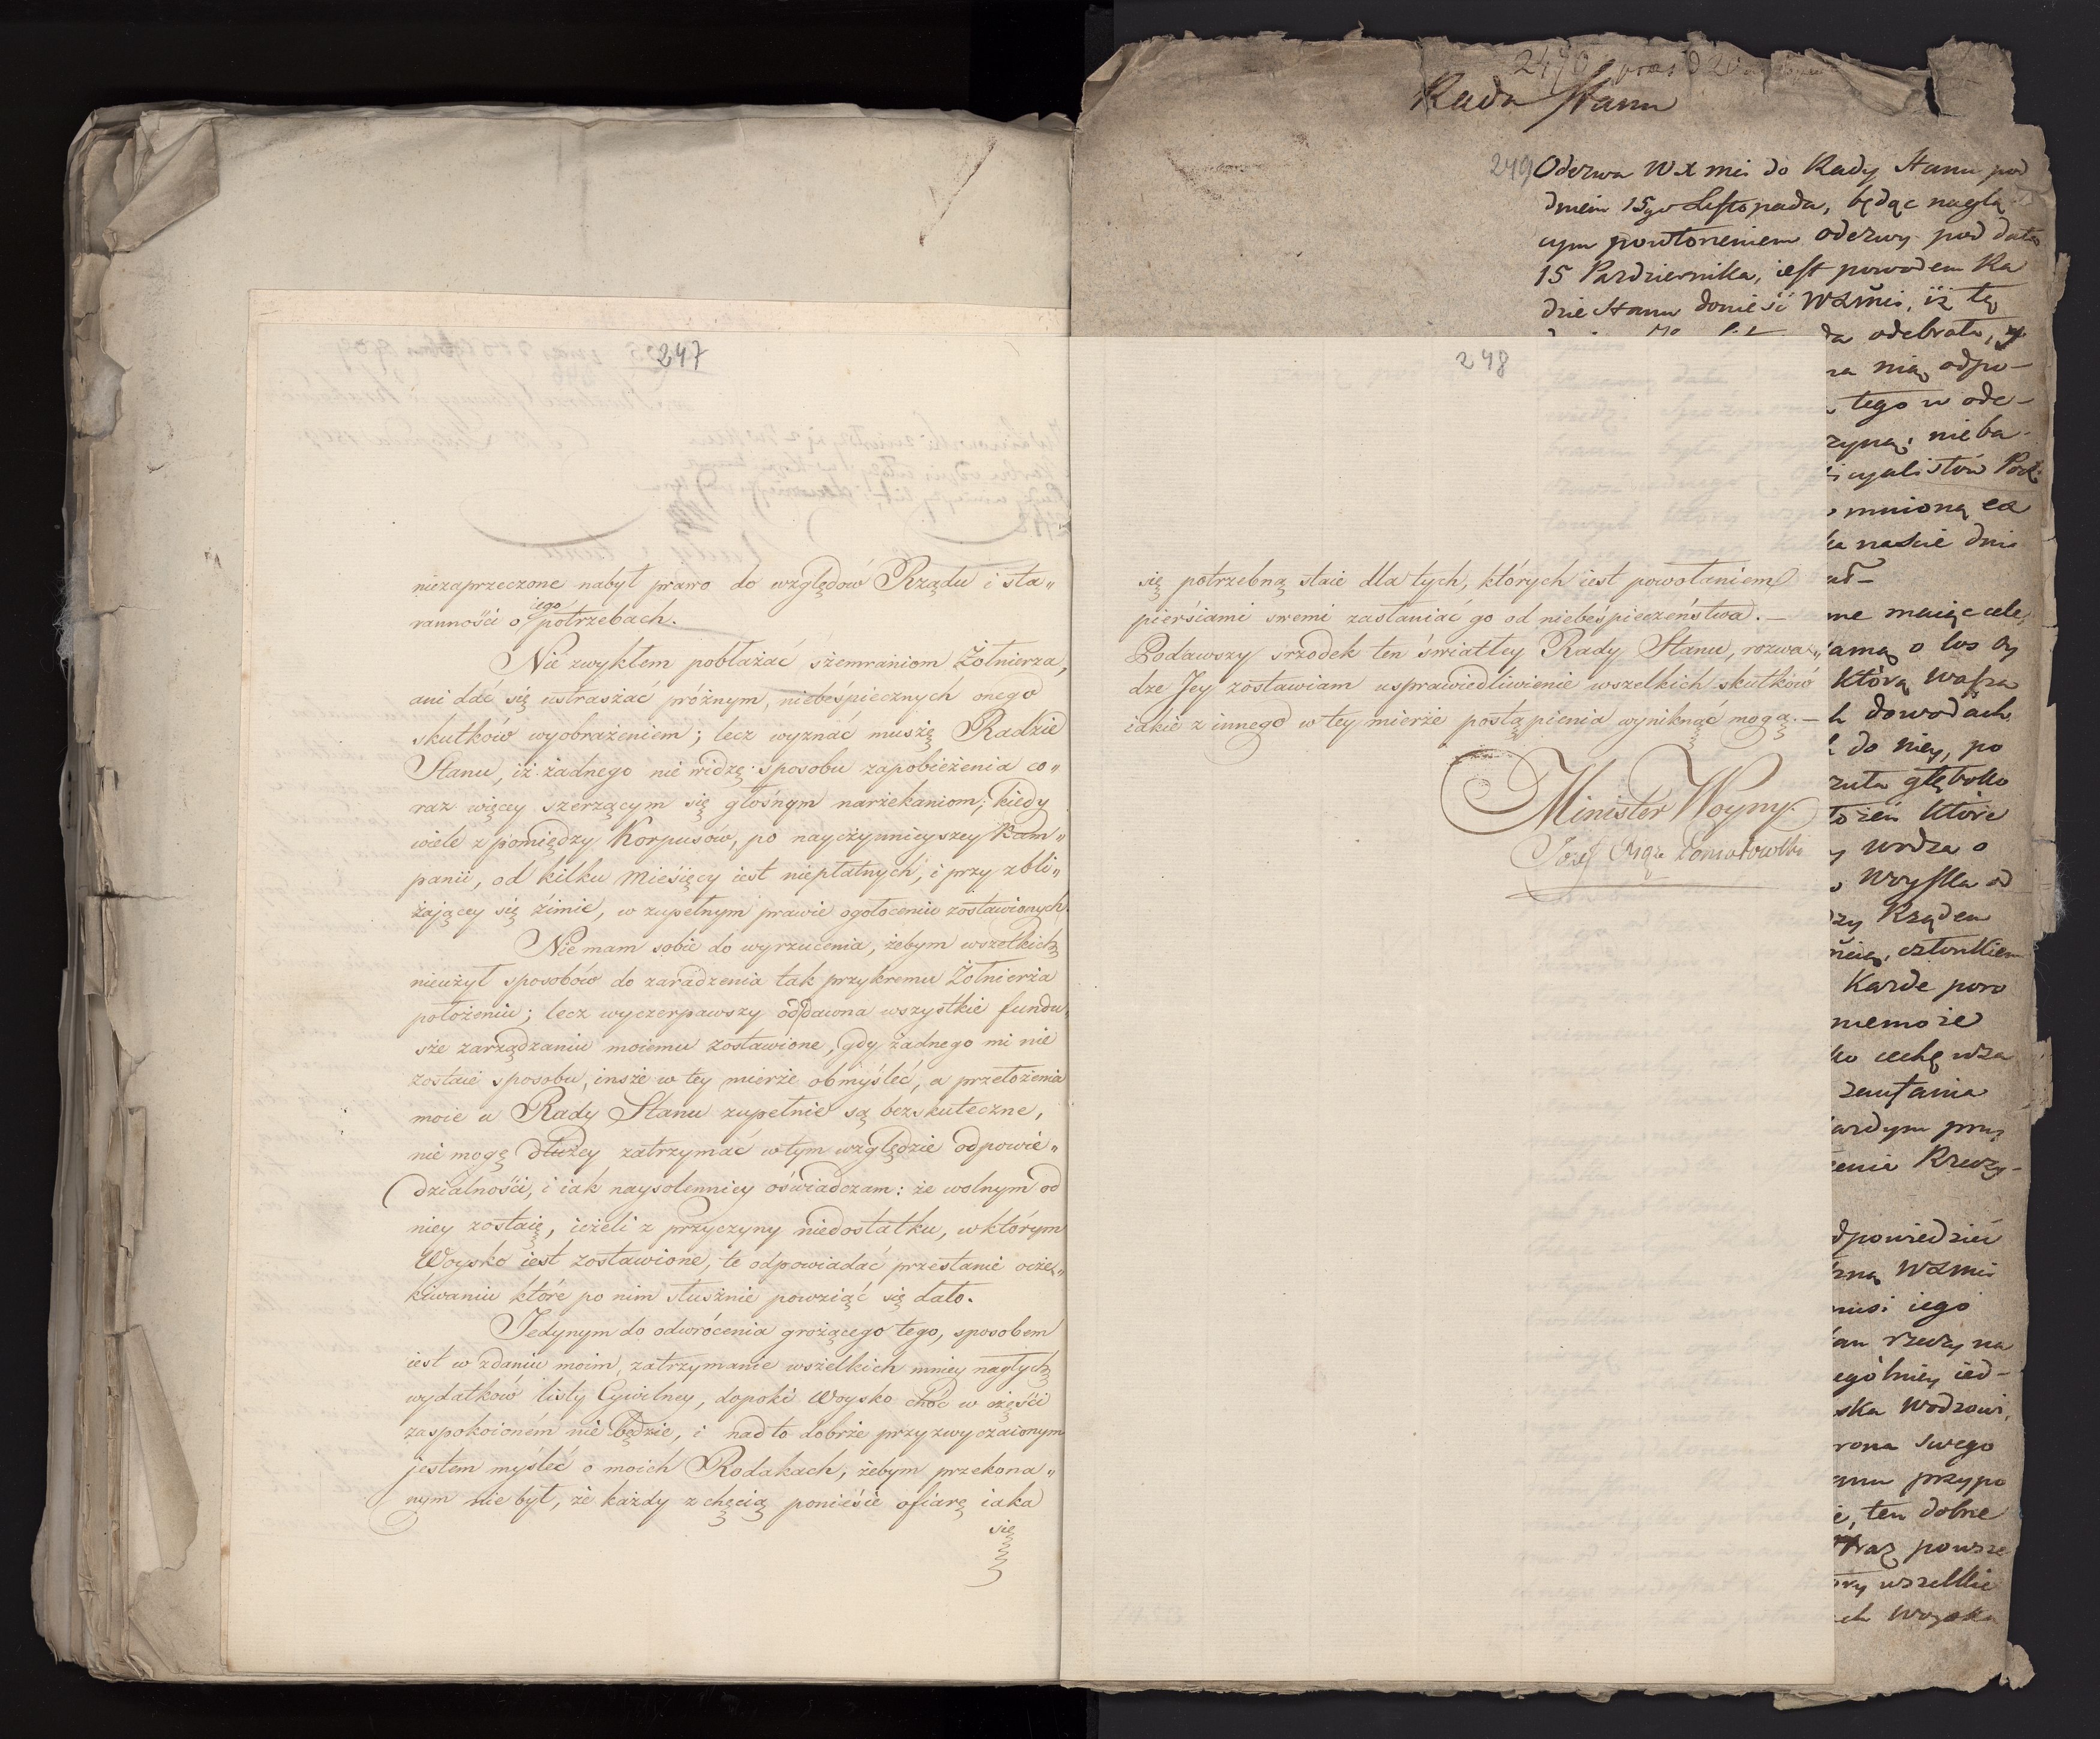 247
niezaprzeczone nabył prawo do względów Rządu i sta„
ranności o iego potrzebach.
Nie zwykłem pobłażać szemraniom Żołnierza,
ani dać się ustraszać próżnym, niebeśpiecznych onego
skutków wyobrażeniem; lecz wyznać muszę Radzie
Stanu, iż żadnego nie widzę sposobu zapobieżenia co„
raz więcey szerzącym się głośnym narzekaniom; kiedy
wiele z pomiędzy Korpusów, po nayczynnieyszey Kam„
panii, od kilku Miesięcy iest niepłatnych, i przy zbli„
żaiącey się zimie, w zupełnym prawie ogołoceniu zostawionych.
Nie mam sobie do wyrzucenia, żebym wszelkich
nieużył sposobów do zaradzenia tak przykremu Żołnierza
położeniu; lecz wyczerpawszy oddawna wszystkie fundu„
sze zarządzaniu moiemu zostawione, gdy żadnego mi nie
zostaie sposobu, insze w tey mierze obmyśleć, a przełożenia
moie u Rady Stanu zupełnie są bezskuteczne,
nie mogę dłużey zatrzymać w tym względzie odpowie„
dzialności, i iak naysolenniey oświadczam: że wolnym od
niey zostaię, ieżeli z przyczyny niedostatku, w którym
Woysko iest zostawione, te odpowiadać przestanie ocze„
kiwaniu które po nim słusznie powziąć się dało.
Jedynym do odwrócenia grożącego tego, sposobem
iest w zdaniu moim, zatrzymanie wszelkich mniey nagłych
wydatków listy Cywilney, dopoki Woysko choć w części
zaspokoioném nie będzie, i nadto dobrze przyzwyczaionym
jestem myśleć o moich Rodakach, żebym przekona„
nym nie był, że każdy z chęcią poniesie ofiarę iaka
się
248
się potrzebną staie dla tych, których iest powołaniem
pierśiami swemi zasłaniać go od niebeśpieczeństwa. —
Podawszy srzodek ten światłey Rady Stanu, rozwa„
dze Jey zostawiam usprawiedliwienie wszelkich skutków
iakie z innego w tey mierze postąpienia wyniknąć mogą. —
Minister Woyny.
Józef Xiąże Poniatowski
Rada Stanu
249
Odezwa WXMci do Rady Stanu pod
dniem 15go Listopada, będąc naglą
cym powtorzeniem odezwy pod datą
15 Pazdziernika, iest powodem Ra
dzie Stanu donieść WXMci, iż tę
da odebrała, y
na nią odpo-
tego w ode-
zyną, nieba
icyalistów Pocz
mnioną ex
ka naście dni
me maiąc cele,
amą o los Oy
którą wasza
h dowodach
do niey, po
zuta głęboko
żeń które
wdza o
Woyska od
zy Rządem
członkiem
Każde poro
niemoże
ko cechę wza
zaufania
ażdym przy
enia Rzeczy-
dpowiedzieć
ną WXMci
musi iego
tan rzeczy na
ególniey ied-
ska Wodzowi,
rona swego
anu przypo
ten dobrze
raz powsze
ry wszelkie
ch woyska